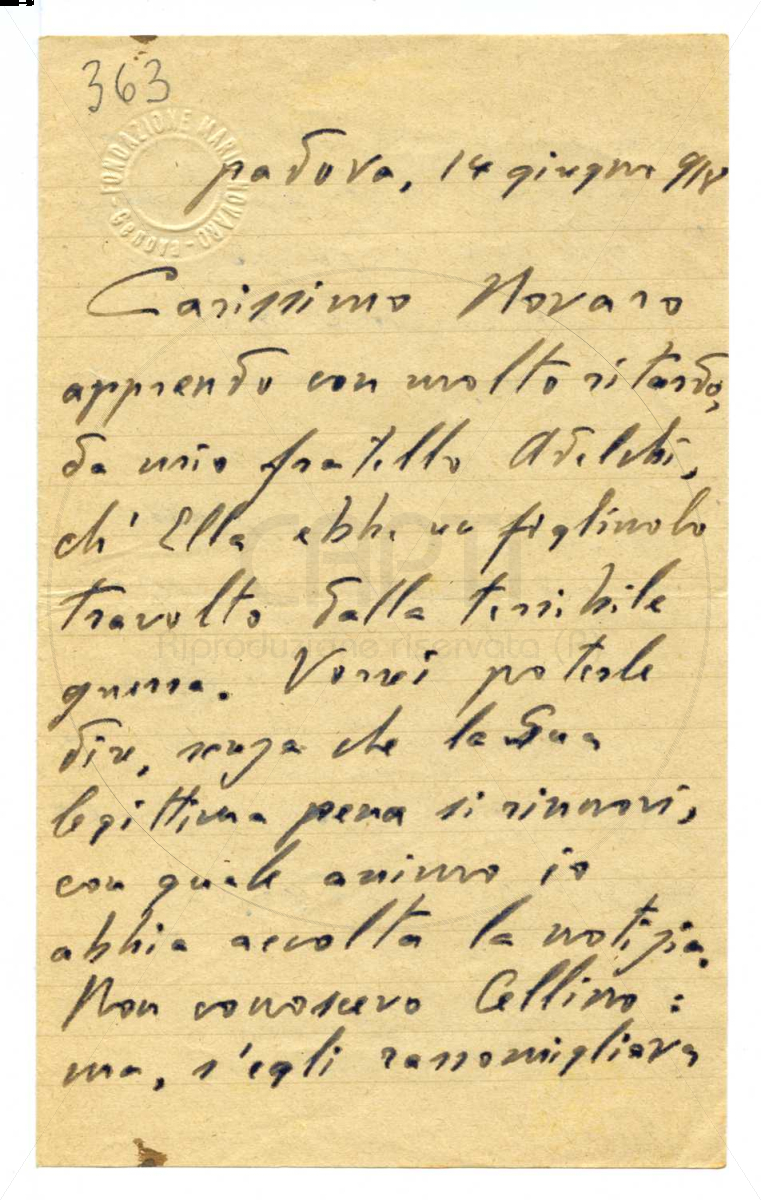 363
FONDAZIONE MARIO NOVARO
- Genova -
padova, 14 giugno 918
Carissimo Novaro
apprendo con molto ritardo,
da mio fratello Adelchi,
ch' Ella ebbe un figliuolo
travolto dalla terribile
guerra. Vorrei poterle
dire, senza che la Sua
legittima pena si rinnovi,
con quale animo io
abbia accolta la notizia.
Non conoscevo Cellino:
ma, s'egli rassomigliava
CARTI
Riproduzione riservata (R)